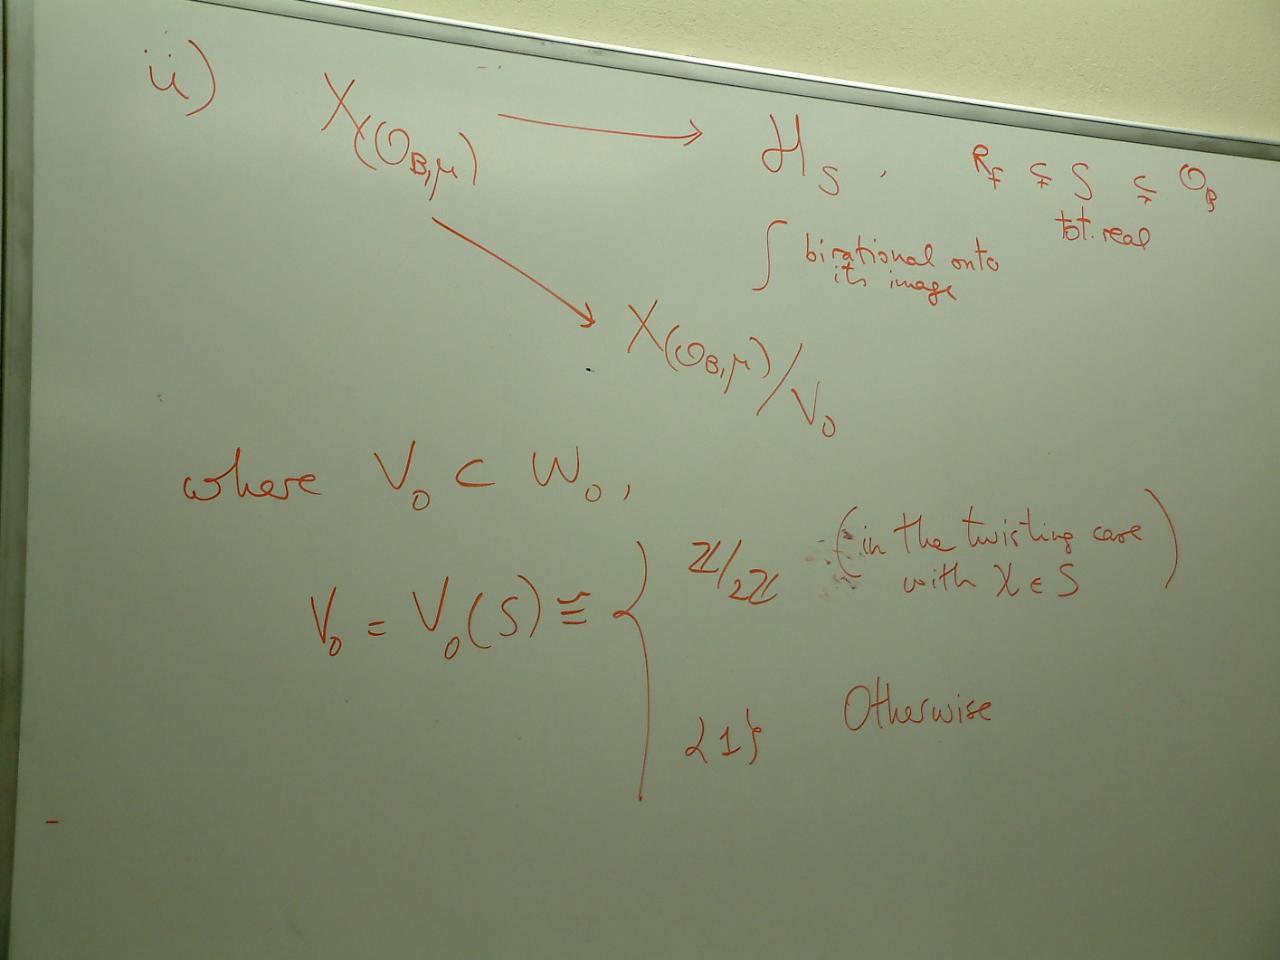 ii) X(O_B,μ) → H_S , R_F ⊊ S ⊊ O_B
tot. real
∫ birational onto
its image
X(O_B,μ)/V₀
where V₀ ⊂ W₀,
V₀ = V₀(S) ≅ { ℤ/2ℤ (in the twisting case
with χ ∈ S)
{1} Otherwise